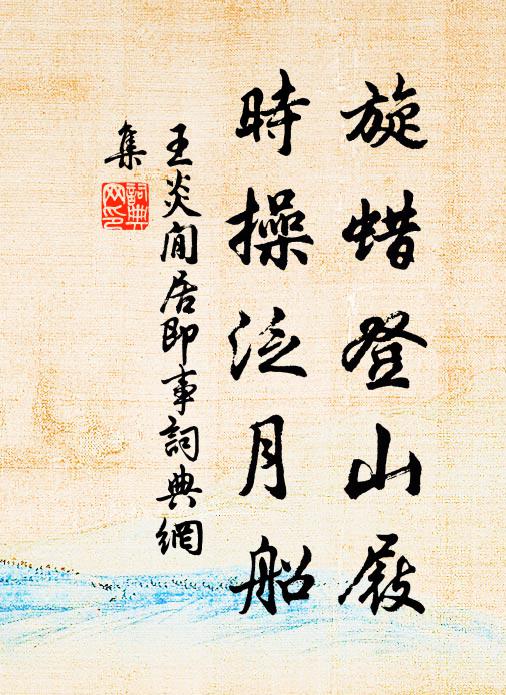 旋蜡登山屐
時操泛月船
王炎閒居即事詞典網
集
詞典
网印